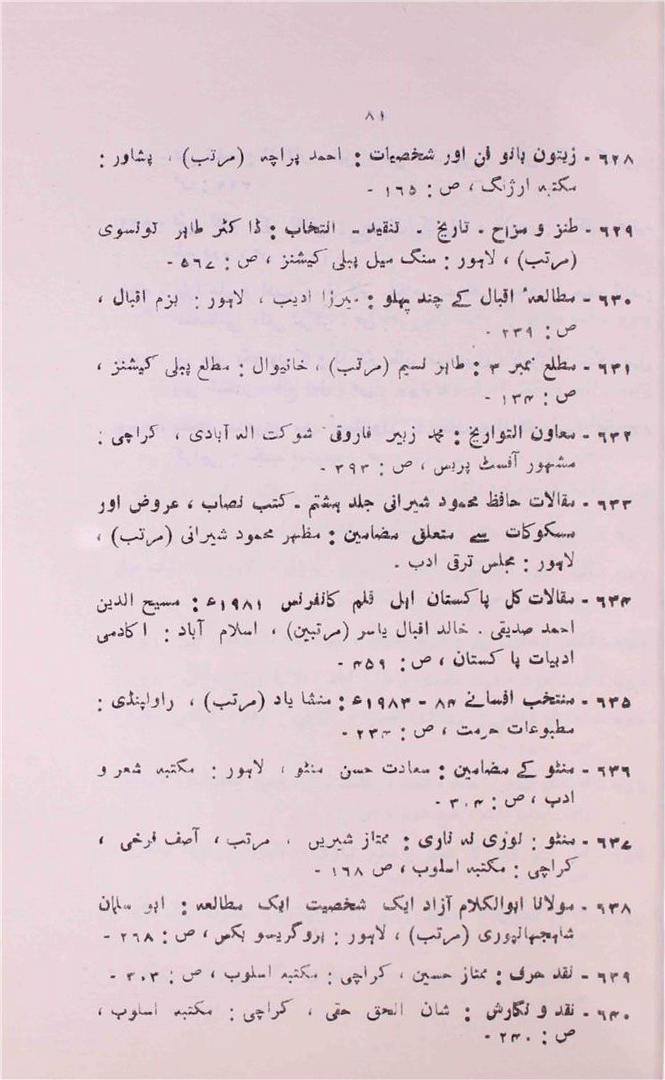 ۸۱
۶۲۸ - زیتون بانو فن اور شخصیات : احمد پراچہ (مرتب) ، پشاور :
مکتبہ ارژنگ ، ص : ۱۶۵ -
۶۲۹ - طنز و مزاح - تاریخ - تنقید - انتخاب : ڈاکٹر طاہر تونسوی
(مرتب) ، لاہور : سنگ میل پبلی کیشنز ، ص : ۵۶۷ -
۶۳۰ - مطالعہٴ اقبال کے چند پہلو : میرزا ادیب ، لاہور : بزم اقبال ،
ص : ۲۳۹ -
۶۳۱ - مطلع نمبر ۳ : طاہر نسیم (مرتب) ، خانیوال : مطلع پبلی کیشنز ،
ص : ۱۳۴ -
۶۳۲ - معاون التواریخ : محمد زبیر فاروقی شوکت الہ آبادی ، کراچی :
مشہور آفسٹ پریس ، ص : ۳۹۳ -
۶۳۳ - مقالات حافظ محمود شیرانی جلد ہشتم - کتب نصاب ، عروض اور
مسکوکات سے متعلق مضامین : مظہر محمود شیرانی (مرتب) ،
لاہور : مجلس ترقی ادب -
۶۳۴ - مقالات کل پاکستان اہل قلم کانفرنس ۱۹۸۱ء : مسیح الدین
احمد صدیقی . خالد اقبال یاسر (مرتبین) ، اسلام آباد : اکادمی
ادبیات پاکستان ، ص : ۴۵۹ -
۶۳۵ - منتخب افسانے ۸۴ - ۱۹۸۳ء : منشا یاد (مرتب) ، راولپنڈی :
مطبوعات حرمت ، ص : ۲۳۴ -
۶۳۶ - منٹو کے مضامین : سعادت حسن منٹو ، لاہور : مکتبہ شعر و
ادب ، ص : ۳۰۴ -
۶۳۷ - منٹو : نوری نہ ناری : ممتاز شیریں ، مرتب ، آصف فرخی ،
کراچی : مکتبہ اسلوب ، ص ۱۶۸ -
۶۳۸ - مولانا ابوالکلام آزاد ایک شخصیت ایک مطالعہ : ابو سلمان
شاہجہانپوری (مرتب) ، لاہور : پروگریسو بکس ، ص : ۲۶۸ -
۶۳۹ - نقد حرف : ممتاز حسین ، کراچی : مکتبہ اسلوب ، ص : ۳۰۳ -
۶۴۰ - نقد و نگارش : شان الحق حقی ، کراچی : مکتبہ اسلوب ،
ص : ۲۴۰ -